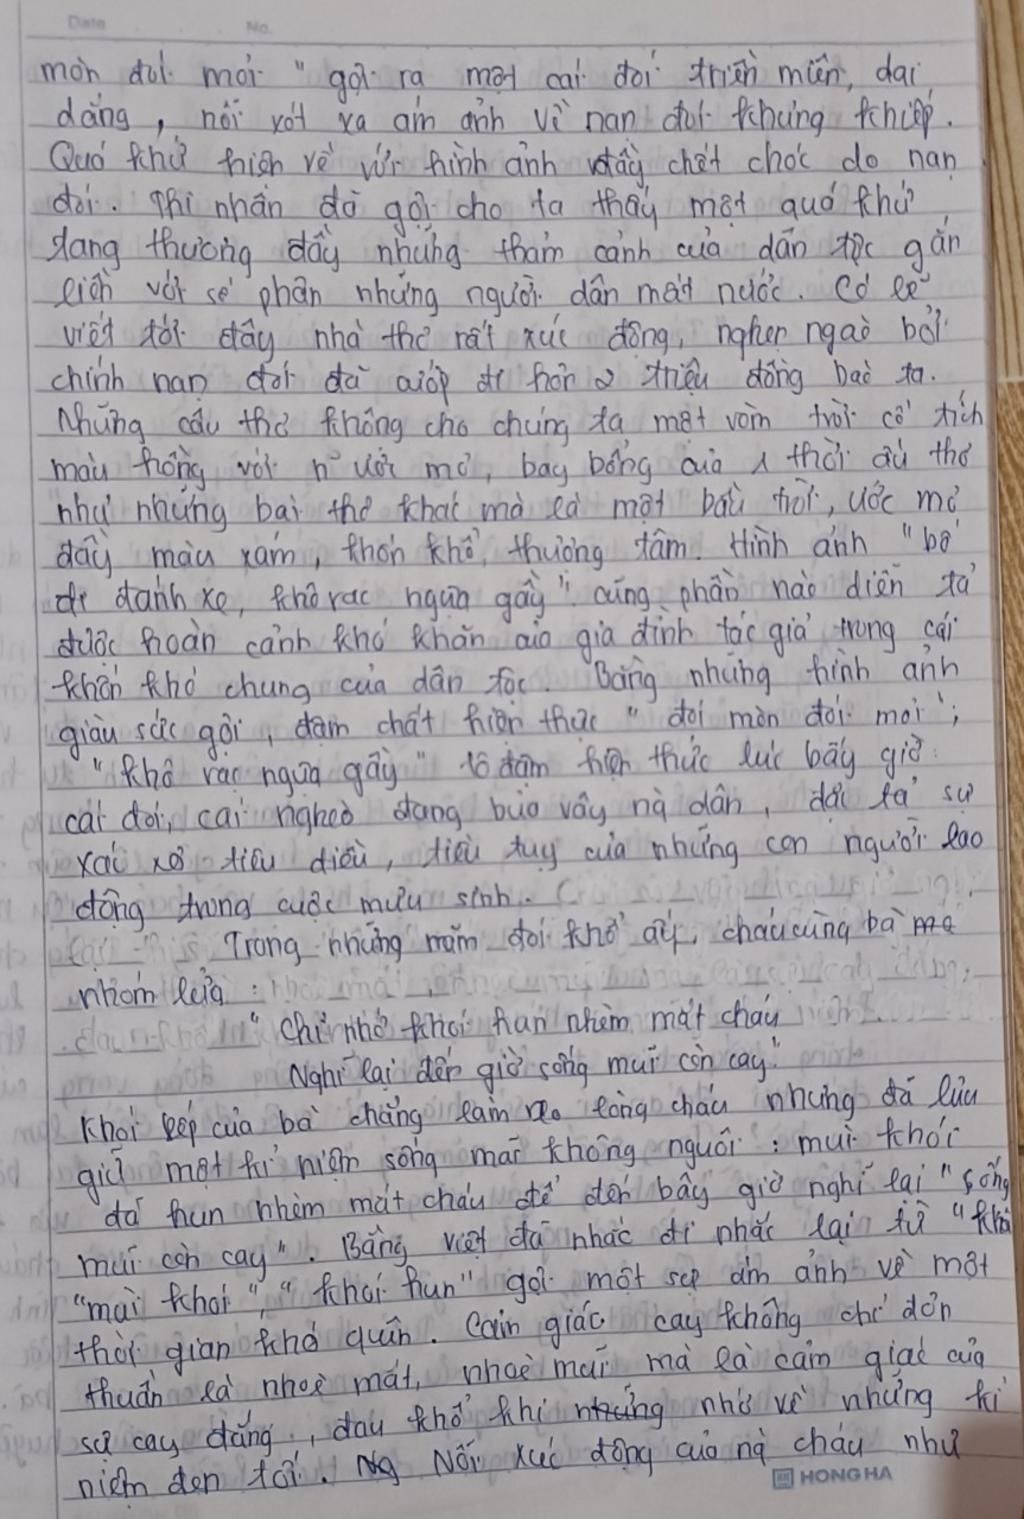 Date No.
mòn đói mỏi" gợi ra một cái đói triền miên, dai
dẳng, nỗi xót xa ám ảnh về nạn đói khủng khiếp.
Quá khứ hiện về với hình ảnh đầy chết chóc do nạn
đói. Thi nhân đã gợi cho ta thấy một quá khứ
tang thương đầy những thảm cảnh của dân tộc gắn
liền với số phận những người dân mất nước. Có lẽ
viết tới đây nhà thơ rất xúc động, nghẹn ngào bởi
chính nạn đói đã cướp đi hơn 2 triệu đồng bào ta.
Những câu thơ không cho chúng ta một vòm trời cổ tích
màu hồng với n~ ước mơ, bay bổng của 1 thời ấu thơ
như những bài thơ khác mà là một bầu trời, ước mơ
đầy màu xám, khốn khổ, thương tâm. Hình ảnh "bố
đi đánh xe, khô rạc ngựa gầy" cũng phần nào diễn tả
được hoàn cảnh khó khăn của gia đình tác giả trong cái
khốn khó chung của dân tộc. Bằng những hình ảnh
giàu sức gợi, đậm chất hiện thực "đói mòn đói mỏi";
"khô rạc ngựa gầy" tô đậm hiện thức lúc bấy giờ:
cái đói, cái nghèo đang bủa vây ng dân, đặc tả sự
xác xơ tiêu điều, tiều tụy của những con người lao
động trong cuộc mưu sinh.
Trong những năm đói khổ ấy, cháu cùng bà
nhóm lửa:
"Chỉ nhớ khói hun nhèm mắt cháu
Nghĩ lại đến giờ sống mũi còn cay."
Khói bếp của bà chẳng làm no lòng cháu nhưng đã lưu
giữ một kỉ niệm sống mãi không nguôi: mùi khói
đã hun nhèm mắt cháu để đến bây giờ nghĩ lại "sống
mũi còn cay". Bằng Việt đã nhắc đi nhắc lại từ "khói
"mùi khói", "khói hun" gợi một sự ám ảnh về một
thời gian khó quên. Cảm giác cay không chỉ đơn
thuần là nhoè mắt, nhoè mũi mà là cảm giác của
sự cay đắng, đau khổ khi nhớ về những kỉ
niệm đen tối. Nỗi xúc động của ng cháu như
HONG HA